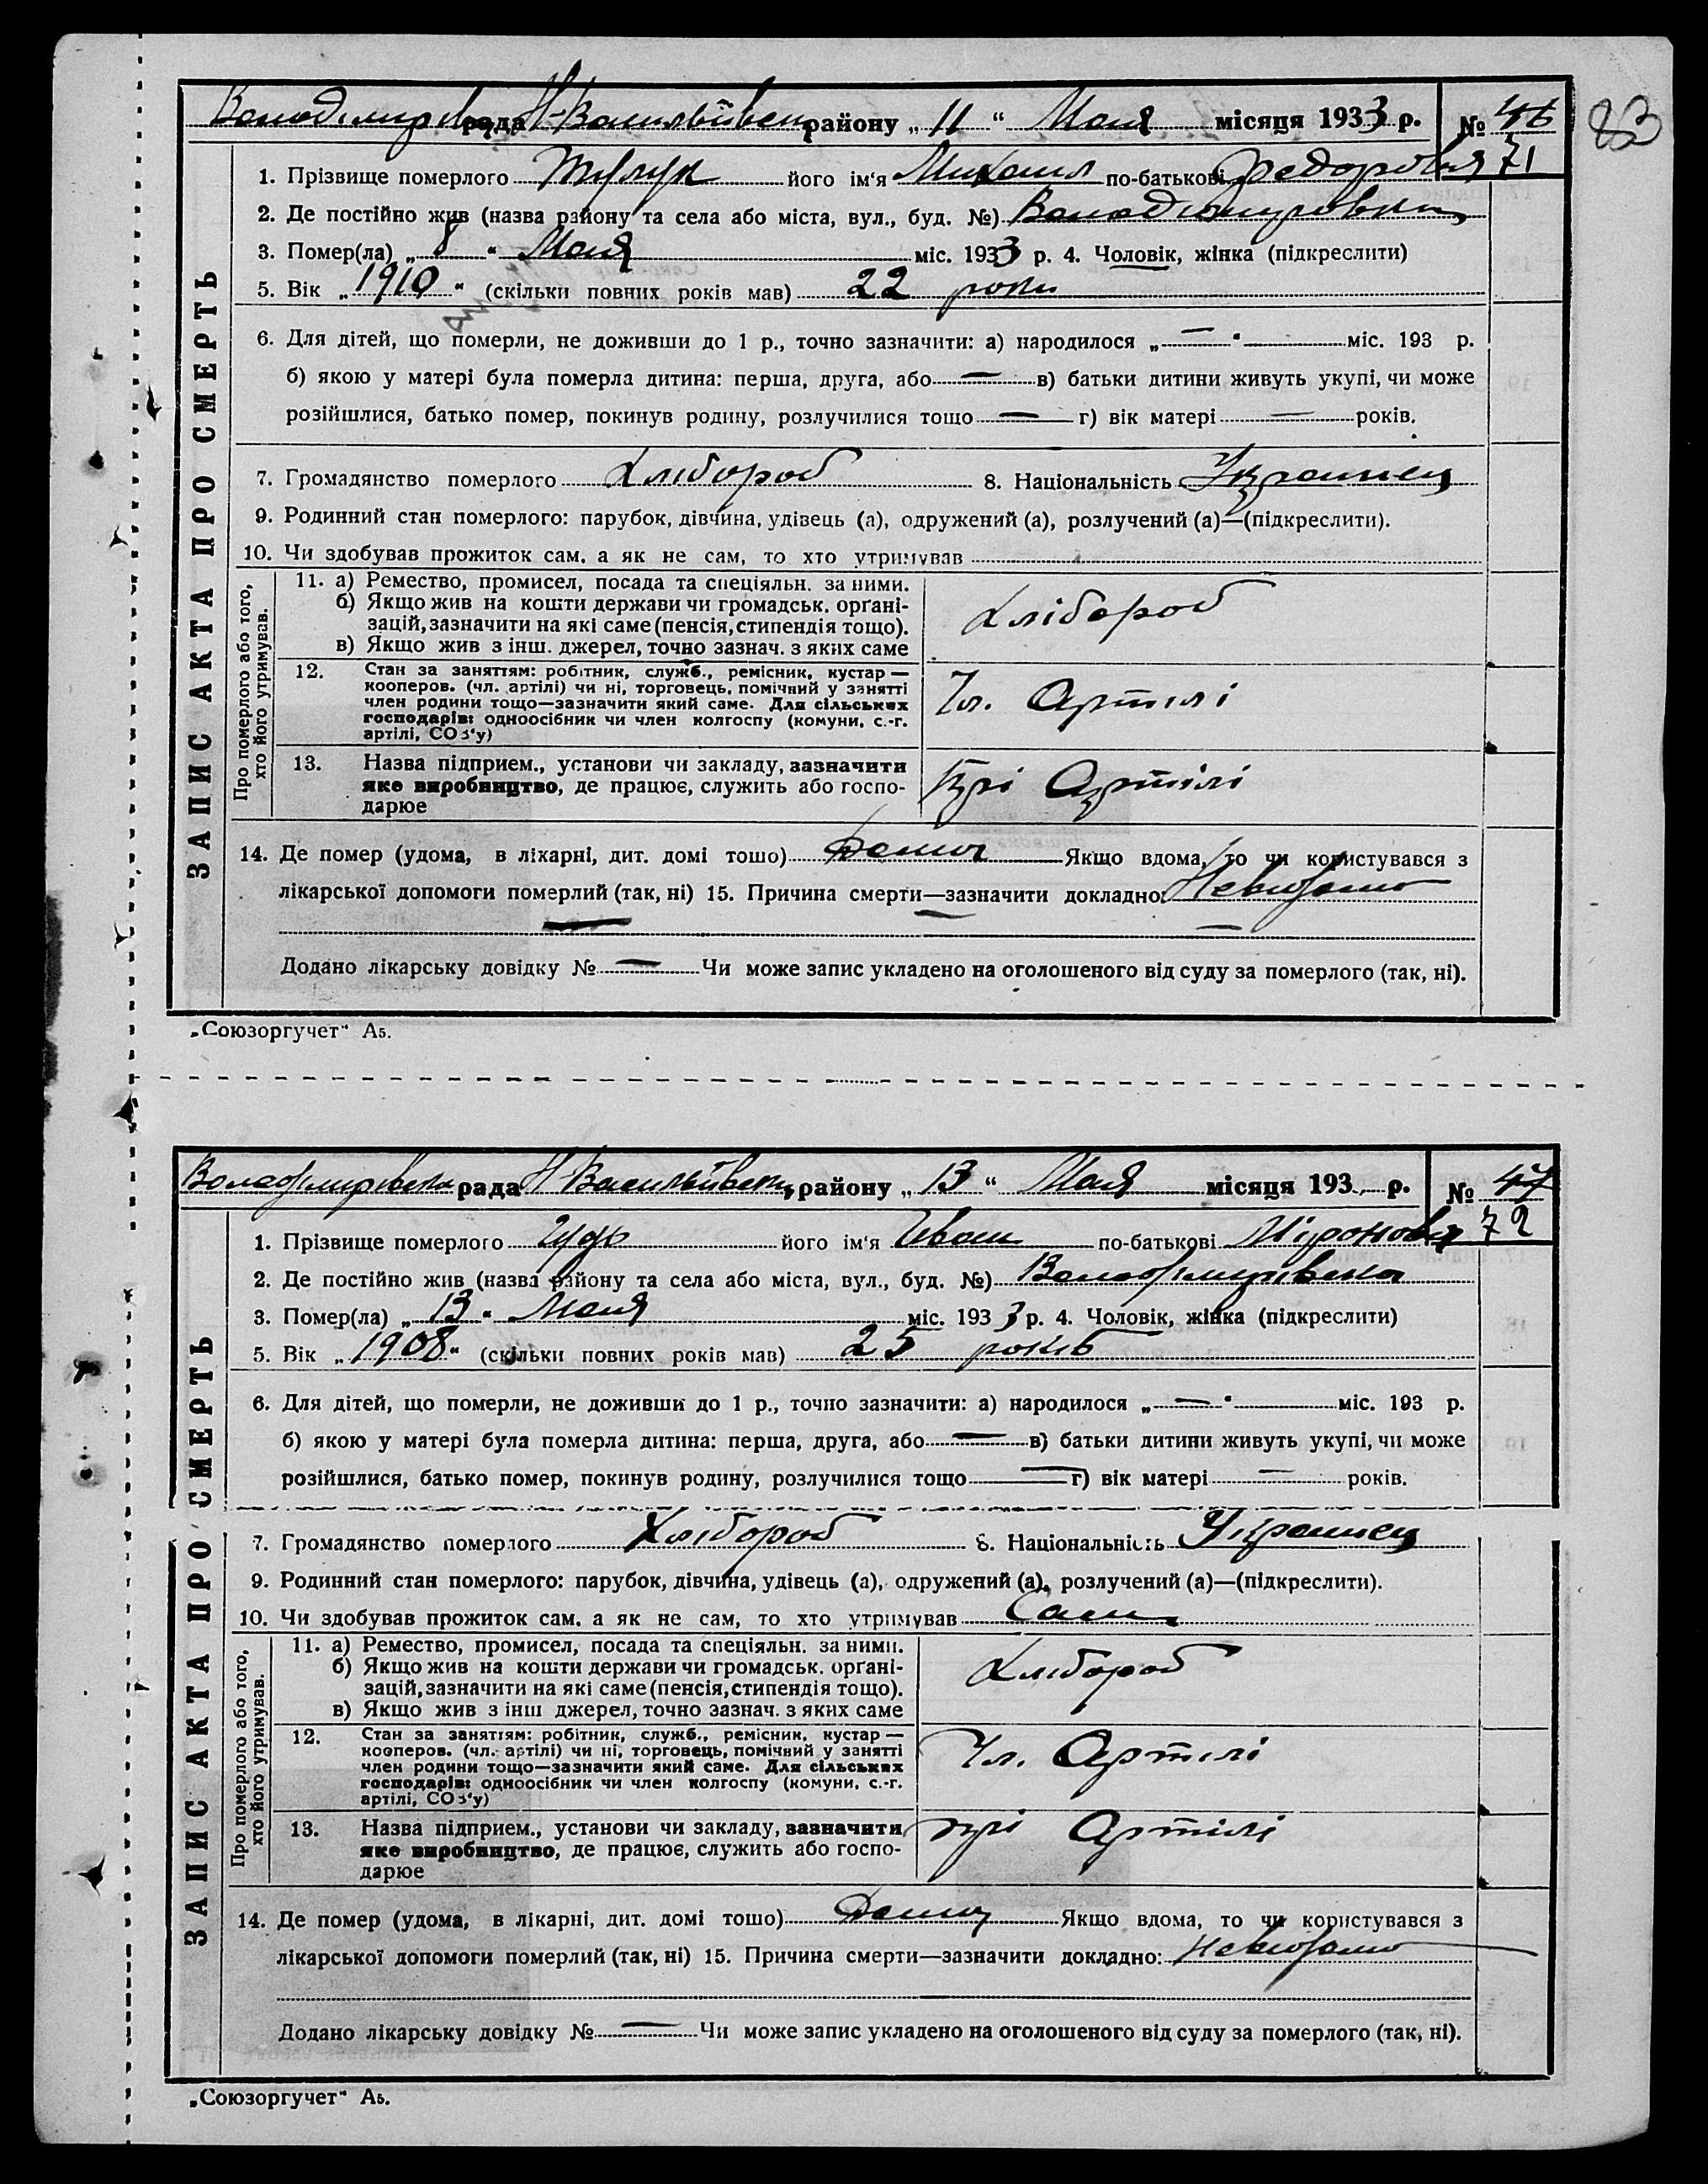 83
Володімирівська рада Н-Васильївськ району „ 11 “ Мая місяця 1933 р. № 46
71
1. Прізвище померлого його ім‘я Михаил по-батькові Федоровія
2. Де постійно жив (назва району та села або міста, вул., буд. №) Володімировка
3. Помер(ла) „ 8 “ Мая міс. 1933 р. 4. Чоловік, жінка (підкреслити)
5. Вік „ 1910 “ (скільки повних років мав) 22 роки
6. Для дітей, що померли, не доживши до 1 р., точно зазначити: а) народилося „ — “ міс. 193 р.
б) якою у матері була померла дитина: перша, друга, або — в) батьки дитини живуть укупі, чи може
розійшлися, батько помер, покинув родину, розлучилися тощо — г) вік матері — років.
7. Громадянство померлого Хлібороб 8. Національність Українец
9. Родинний стан померлого: парубок, дівчина, удівець (а), одружений (а), розлучений (а)—(підкреслити).
10. Чи здобував прожиток сам, а як не сам, то хто утримував
ЗАПИС АКТА ПРО СМЕРТЬ
Про померлого або того,
хто його утримував.
11. а) Ремество, промисел, посада та спеціяльн. за ними.
б) Якщо жив на кошти держави чи громадськ. орґані-
зацій, зазначити на які саме (пенсія, стипендія тощо).
в) Якщо жив з інш. джерел, точно зазнач. з яких саме
Хлібороб
12. Стан за заняттям: робітник, служб., ремісник, кустар—
кооперов. (чл. артілі) чи ні, торговець, помічний у занятті
член родини тощо—зазначити який саме. Для сільських
господарів: одноосібник чи член колгоспу (комуни, с.-г.
артілі, СОЗ‘у)
Чл. Артілі
13. Назва підприєм., установи чи закладу, зазначити
яке виробництво, де працює, служить або госпо-
дарює
прі Артілі
14. Де помер (удома, в лікарні, дит. домі тощо) Дома Якщо вдома, то чи користувався з
лікарської допомоги померлий (так, ні) 15. Причина смерти—зазначити докладно: Невидомо
— — —
Додано лікарську довідку № — Чи може запис укладено на оголошеного від суду за померлого (так, ні).
„Союзоргучет“ А5.
Володімирівська рада Н Васильївськ району „ 13 “ Мая місяця 193 р. № 47
72
1. Прізвище померлого його ім‘я Иван по-батькові Міроновія
2. Де постійно жив (назва району та села або міста, вул., буд. №) Володімирівка
3. Помер(ла) „ 13 “ Мая міс. 1933 р. 4. Чоловік, жінка (підкреслити)
5. Вік „ 1908 “ (скільки повних років мав) 25 років
6. Для дітей, що померли, не доживши до 1 р., точно зазначити: а) народилося „ — “ міс. 193 р.
б) якою у матері була померла дитина: перша, друга, або — в) батьки дитини живуть укупі, чи може
розійшлися, батько помер, покинув родину, розлучилися тощо — г) вік матері — років.
7. Громадянство померлого Хлібороб 8. Національність Українец
9. Родинний стан померлого: парубок, дівчина, удівець (а), одружений (а), розлучений (а)—(підкреслити).
10. Чи здобував прожиток сам, а як не сам, то хто утримував Сам
ЗАПИС АКТА ПРО СМЕРТЬ
Про померлого або того,
хто його утримував.
11. а) Ремество, промисел, посада та спеціяльн. за ними.
б) Якщо жив на кошти держави чи громадськ. орґані-
зацій, зазначити на які саме (пенсія, стипендія тощо).
в) Якщо жив з інш джерел, точно зазнач. з яких саме
Хлібороб
12. Стан за заняттям: робітник, служб., ремісник, кустар—
кооперов. (чл. артілі) чи ні, торговець, помічний у занятті
член родини тощо—зазначити який саме. Для сільських
господарів: одноосібник чи член колгоспу (комуни, с.-г.
артілі, СОЗ‘у)
Чл. Артілі
13. Назва підприєм., установи чи закладу, зазначити
яке виробництво, де працює, служить або госпо-
дарює
прі Артілі
14. Де помер (удома, в лікарні, дит. домі тощо) Дома Якщо вдома, то чи користувався з
лікарської допомоги померлий (так, ні) 15. Причина смерти—зазначити докладно: Невидомо
Додано лікарську довідку № — Чи може запис укладено на оголошеного від суду за померлого (так, ні).
„Союзоргучет“ А5.